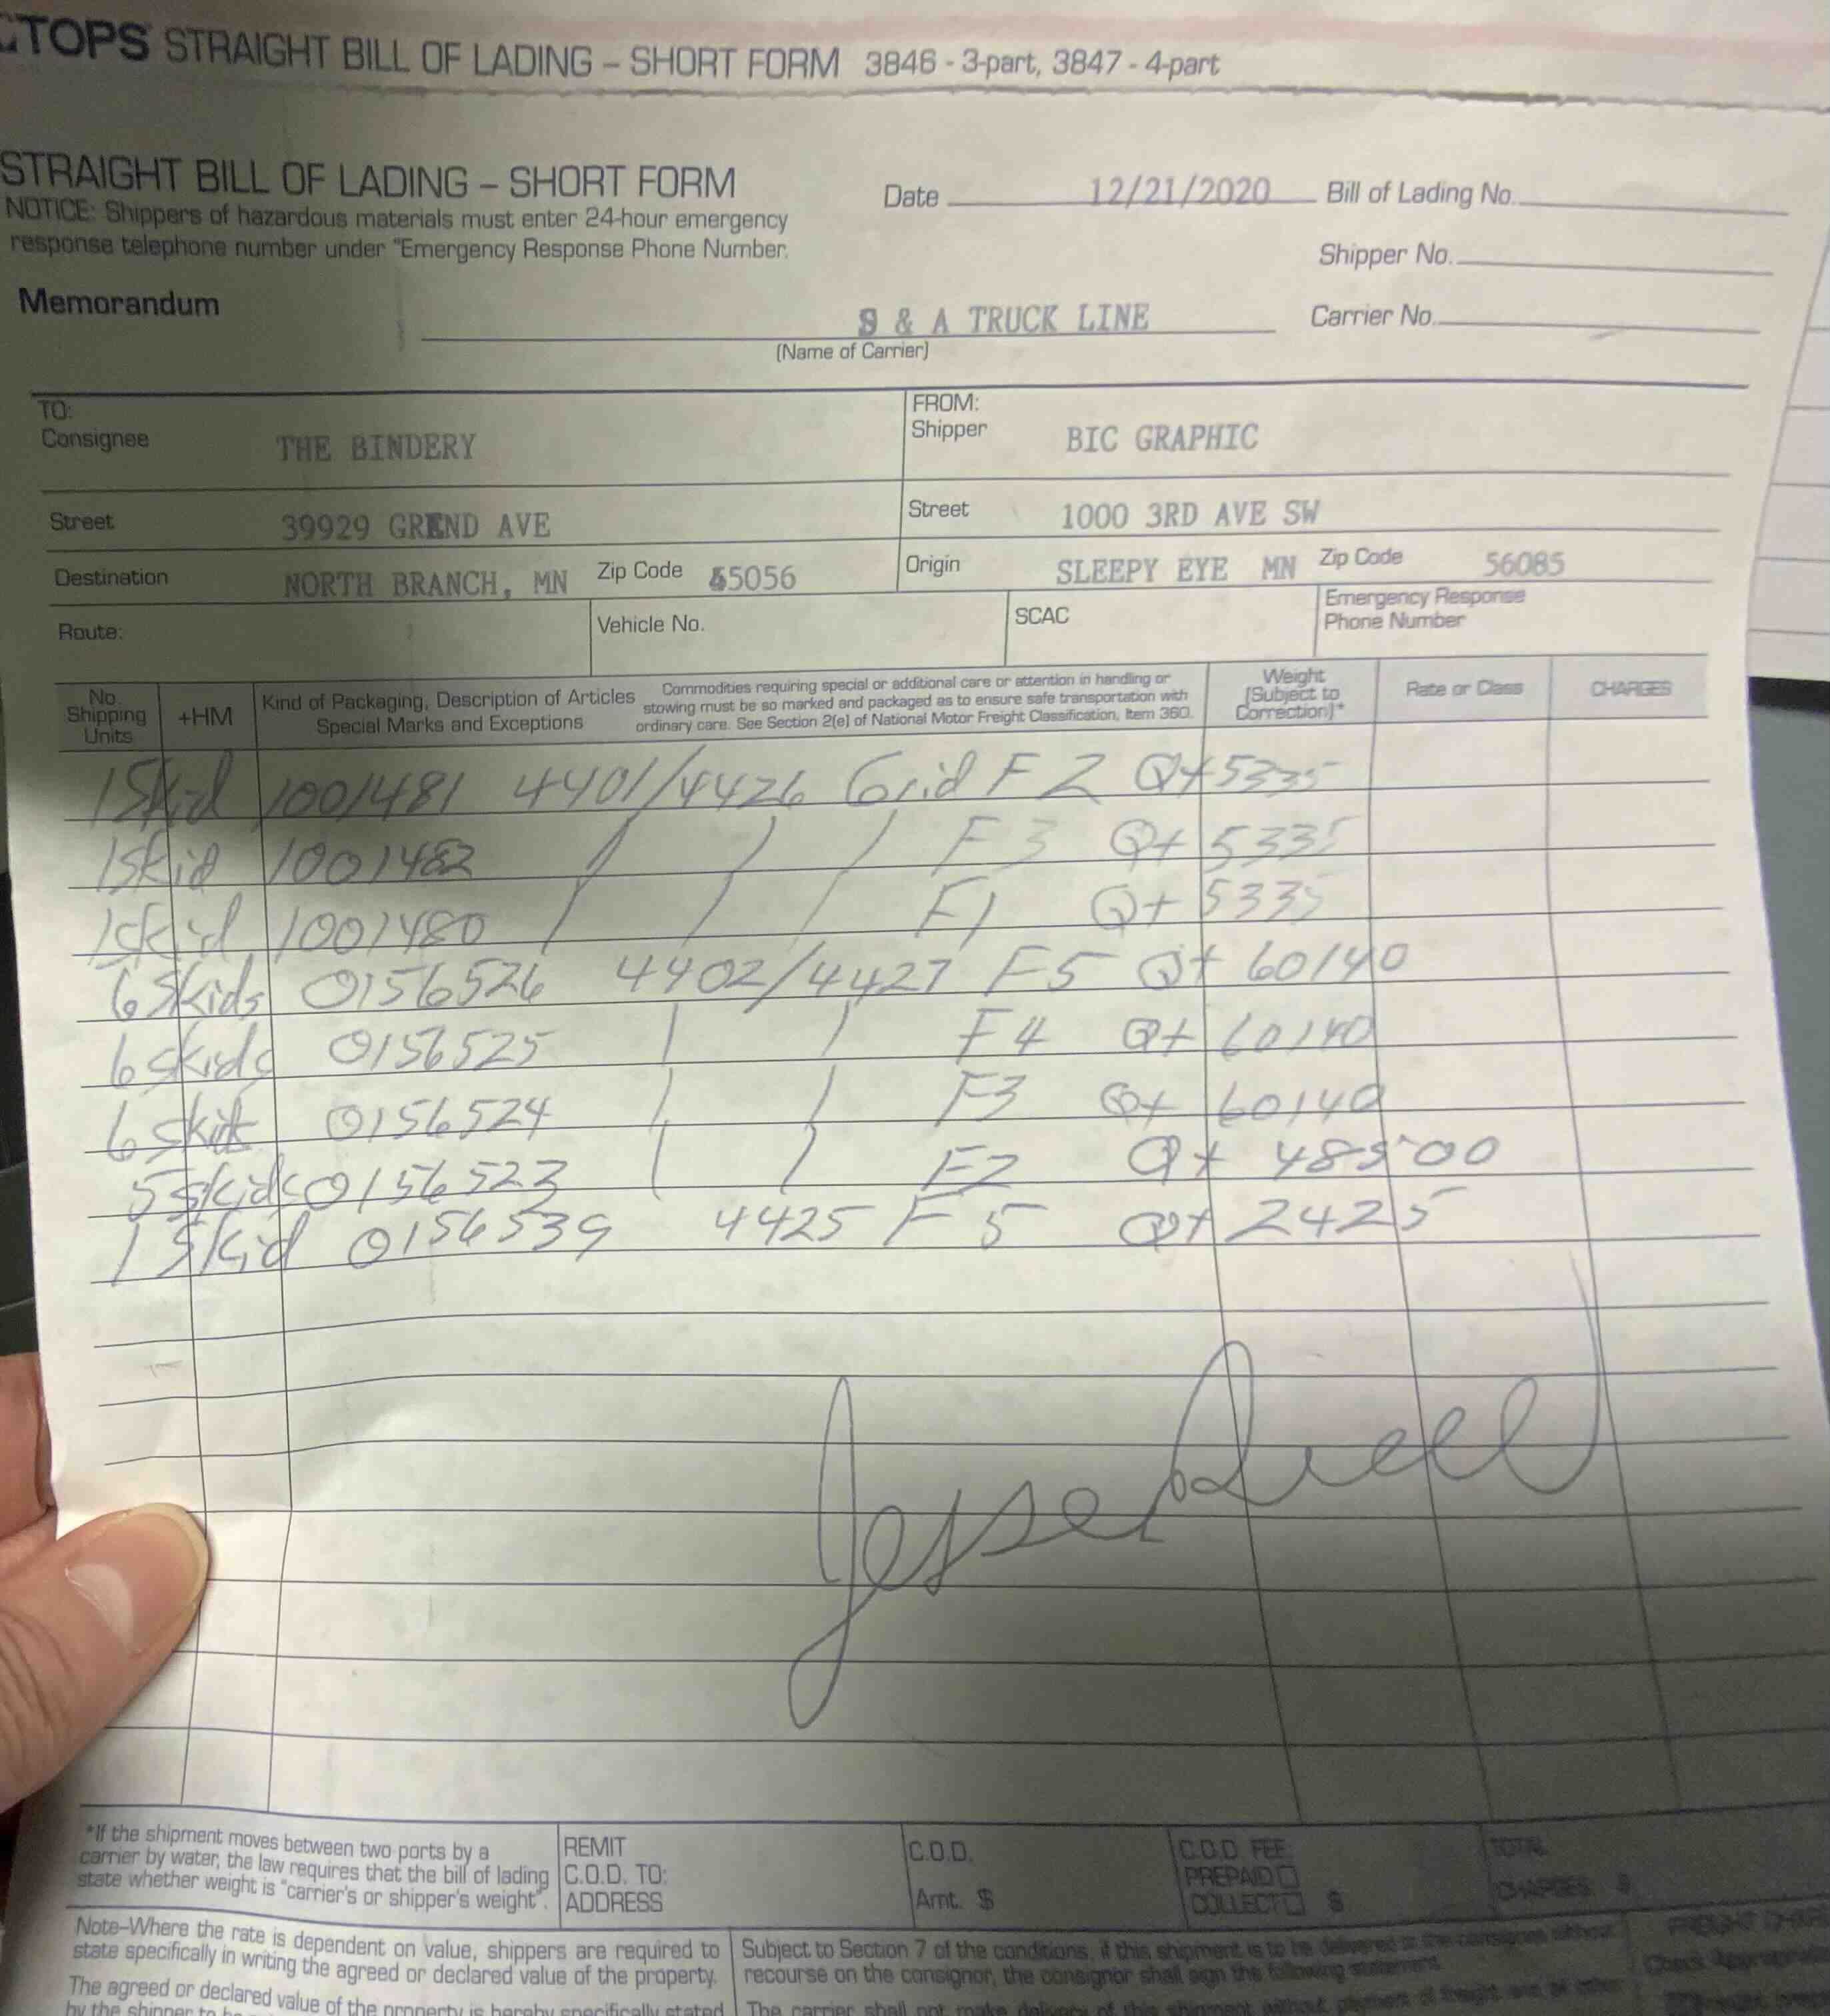 TOPS STRAIGHT BILL OF LADING – SHORT FORM 3846 - 3-part, 3847 - 4-part
STRAIGHT BILL OF LADING – SHORT FORM
NOTICE: Shippers of hazardous materials must enter 24-hour emergency
response telephone number under "Emergency Response Phone Number.
Date 12/21/2020 Bill of Lading No.
Shipper No.
Memorandum
S & A TRUCK LINE Carrier No.
(Name of Carrier)
TO:
Consignee THE BINDERY
FROM:
Shipper BIC GRAPHIC
Street 39929 GREND AVE
Street 1000 3RD AVE SW
Destination NORTH BRANCH, MN Zip Code 55056
Origin SLEEPY EYE MN Zip Code 56085
Route:
Vehicle No.
SCAC
Emergency Response
Phone Number
No.
Shipping
Units
+HM
Kind of Packaging, Description of Articles
Special Marks and Exceptions
Commodities requiring special or additional care or attention in handling or
stowing must be so marked and packaged as to ensure safe transportation with
ordinary care. See Section 2(e) of National Motor Freight Classification, Item 360.
Weight
(Subject to
Correction)*
Rate or Class
CHARGES
1 Skid 1001481 4401/4426 Grid F2 Qt 5335
1 skid 1001482 / / / F3 Qt 5335
1 skid 1001480 / / / F1 Qt 5335
6 Skids 0156526 4402/4427 F5 Qt 60140
6 skids 0156525 | | F4 Qt 60140
6 skids 0156524 | | F3 Qt 60140
5 skids 0156523 | | F2 Qt 48500
1 Skid 0156539 4425 F5 Qt 2425
Jesse
*If the shipment moves between two ports by a
carrier by water, the law requires that the bill of lading
state whether weight is "carrier's or shipper's weight".
REMIT
C.O.D. TO:
ADDRESS
C.O.D.
Amt. $
C.O.D. FEE
PREPAID
COLLECT $
TOTAL
CHARGES $
Note–Where the rate is dependent on value, shippers are required to
state specifically in writing the agreed or declared value of the property.
The agreed or declared value of the property is hereby specifically stated
by the shipper to be
Subject to Section 7 of the conditions, if this shipment is to be delivered to the consignee without
recourse on the consignor, the consignor shall sign the following statement.
The carrier shall not make delivery of this shipment without payment of freight and all other
FREIGHT
Check